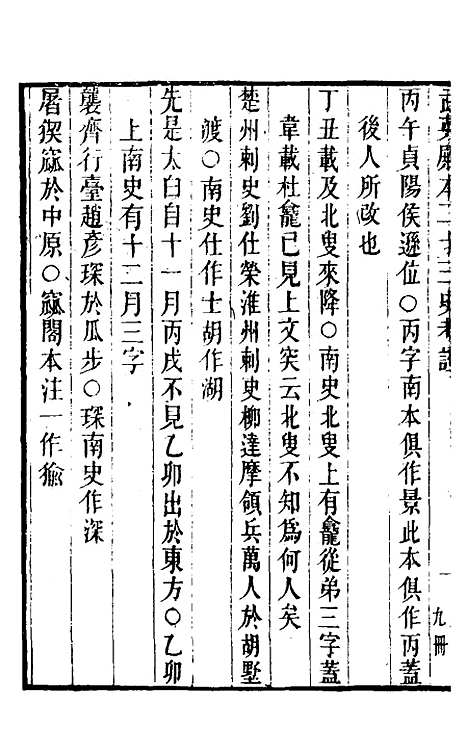 武英殿本二十三史考證
一
九冊
丙午貞陽侯遜位○丙字南本俱作景此本俱作丙蓋
後人所改也
丁丑載及北叟來降○南史北叟上有龕從弟三字蓋
韋載杜龕已見上文突云北叟不知為何人矣
楚州刺史劉仕榮淮州刺史柳達摩領兵萬人於胡墅
渡○南史仕作士胡作湖
先是太白自十一月丙戌不見乙卯出於東方○乙卯
上南史有十二月三字
襲齊行臺趙彥琛於瓜步○琛南史作深
屠猰窳於中原○窳閣本注一作㺄